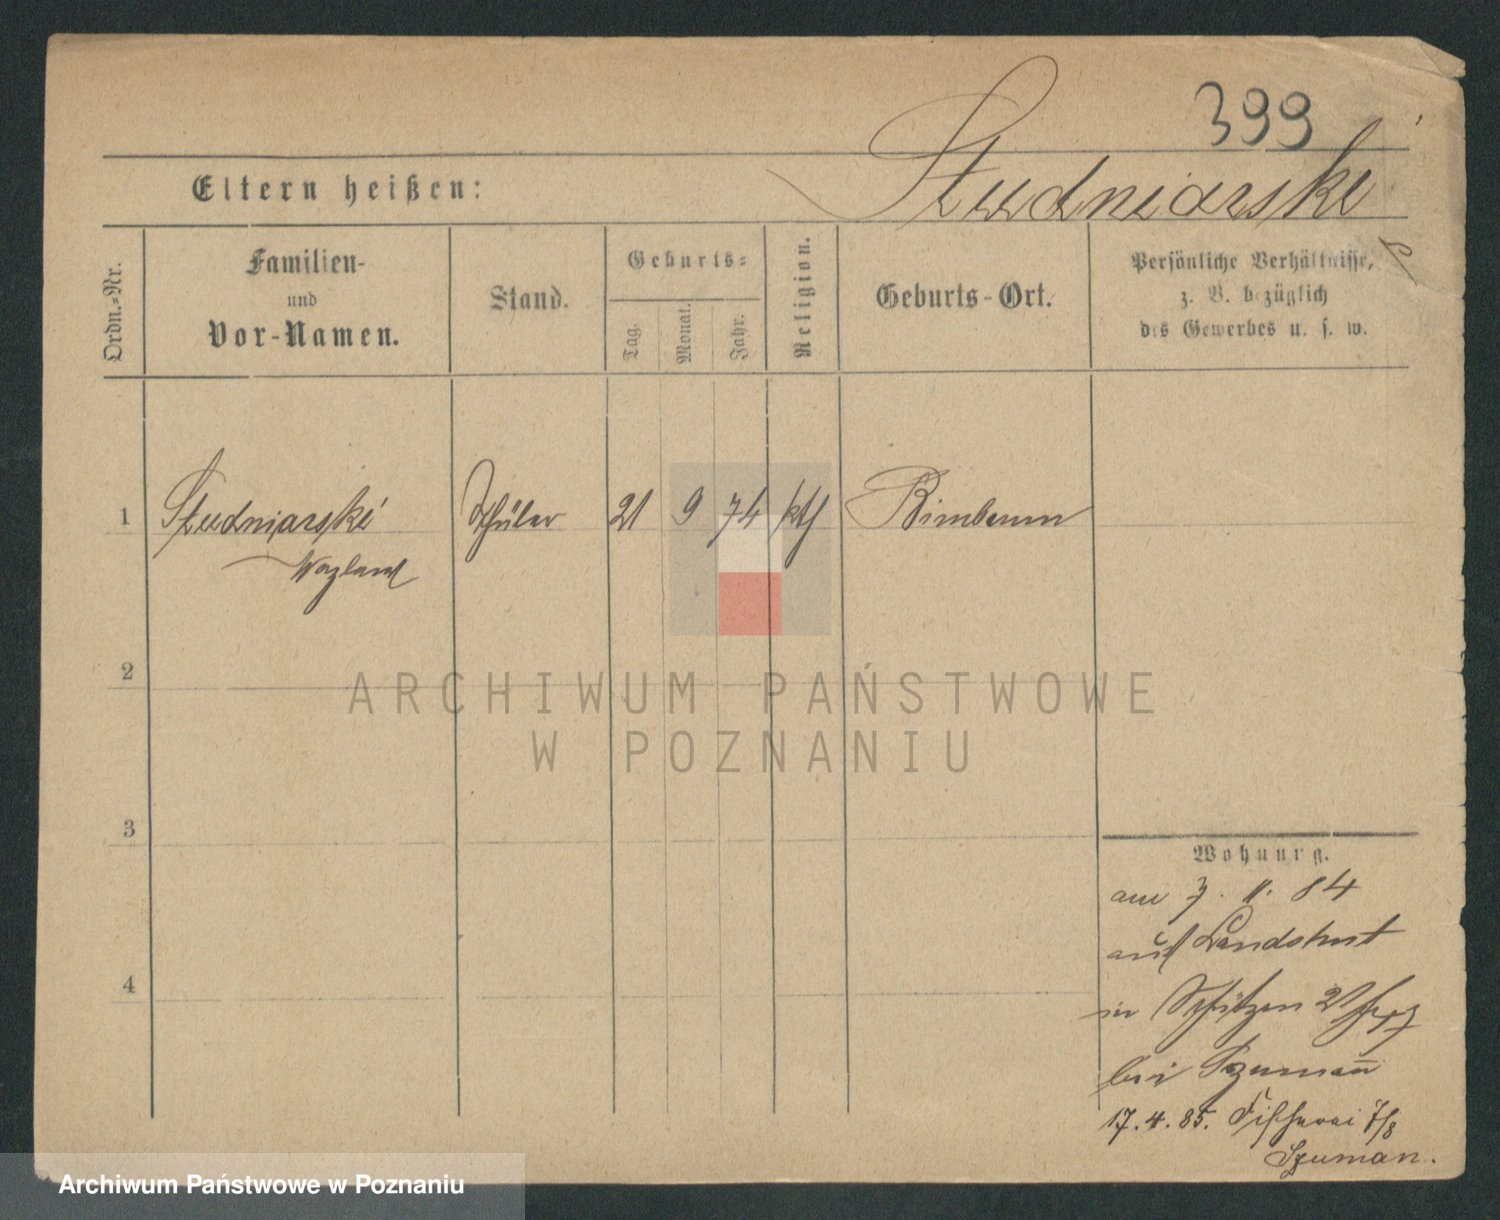 399
Studniarski
Eltern heißen:
Ordn.-Nr.
Familien-
und
Vor-Namen.
Stand.
Geburts-
Tag.
Monat.
Jahr.
Religion.
Geburts-Ort.
Persönliche Verhältnisse,
z. B. bezüglich
des Gewerbes u. s. w.
1 Studniarski Schüler 21 9 74 kth Birnbaum
2
3
4
ARCHIWUM PAŃSTWOWE
W POZNANIU
Wohnung.
am 7. 11. 84
aus Landshut
in Schützen
bei Szuman
17. 4. 85. Fischerei 7/8
Szuman.
Archiwum Państwowe w Poznaniu